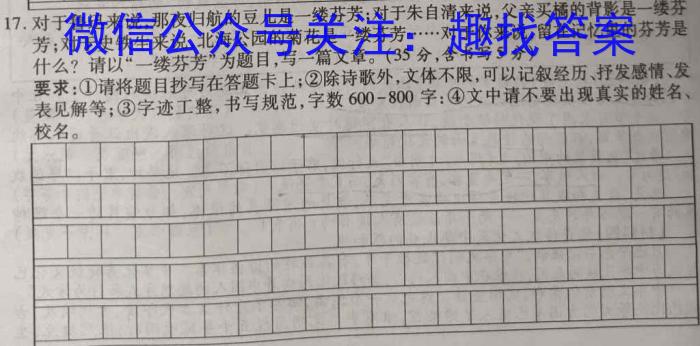 17.对于鲁迅来说,那夜归航的豆儿是一缕芬芳;对于朱自清来说,父亲买橘的背影是一缕芬
芳;对于史铁生来说,北海公园的菊花是一缕芬芳……对于
微信公众号关注:趣找答案
什么?请以“一缕芬芳”为题目,写一篇文章。(35分,含书写5分)
要求:①请将题目抄写在答题卡上;②除诗歌外,文体不限,可以记叙经历、抒发感情、发
表见解等;③字迹工整,书写规范,字数600-800字;④文中请不要出现真实的姓名、
校名。